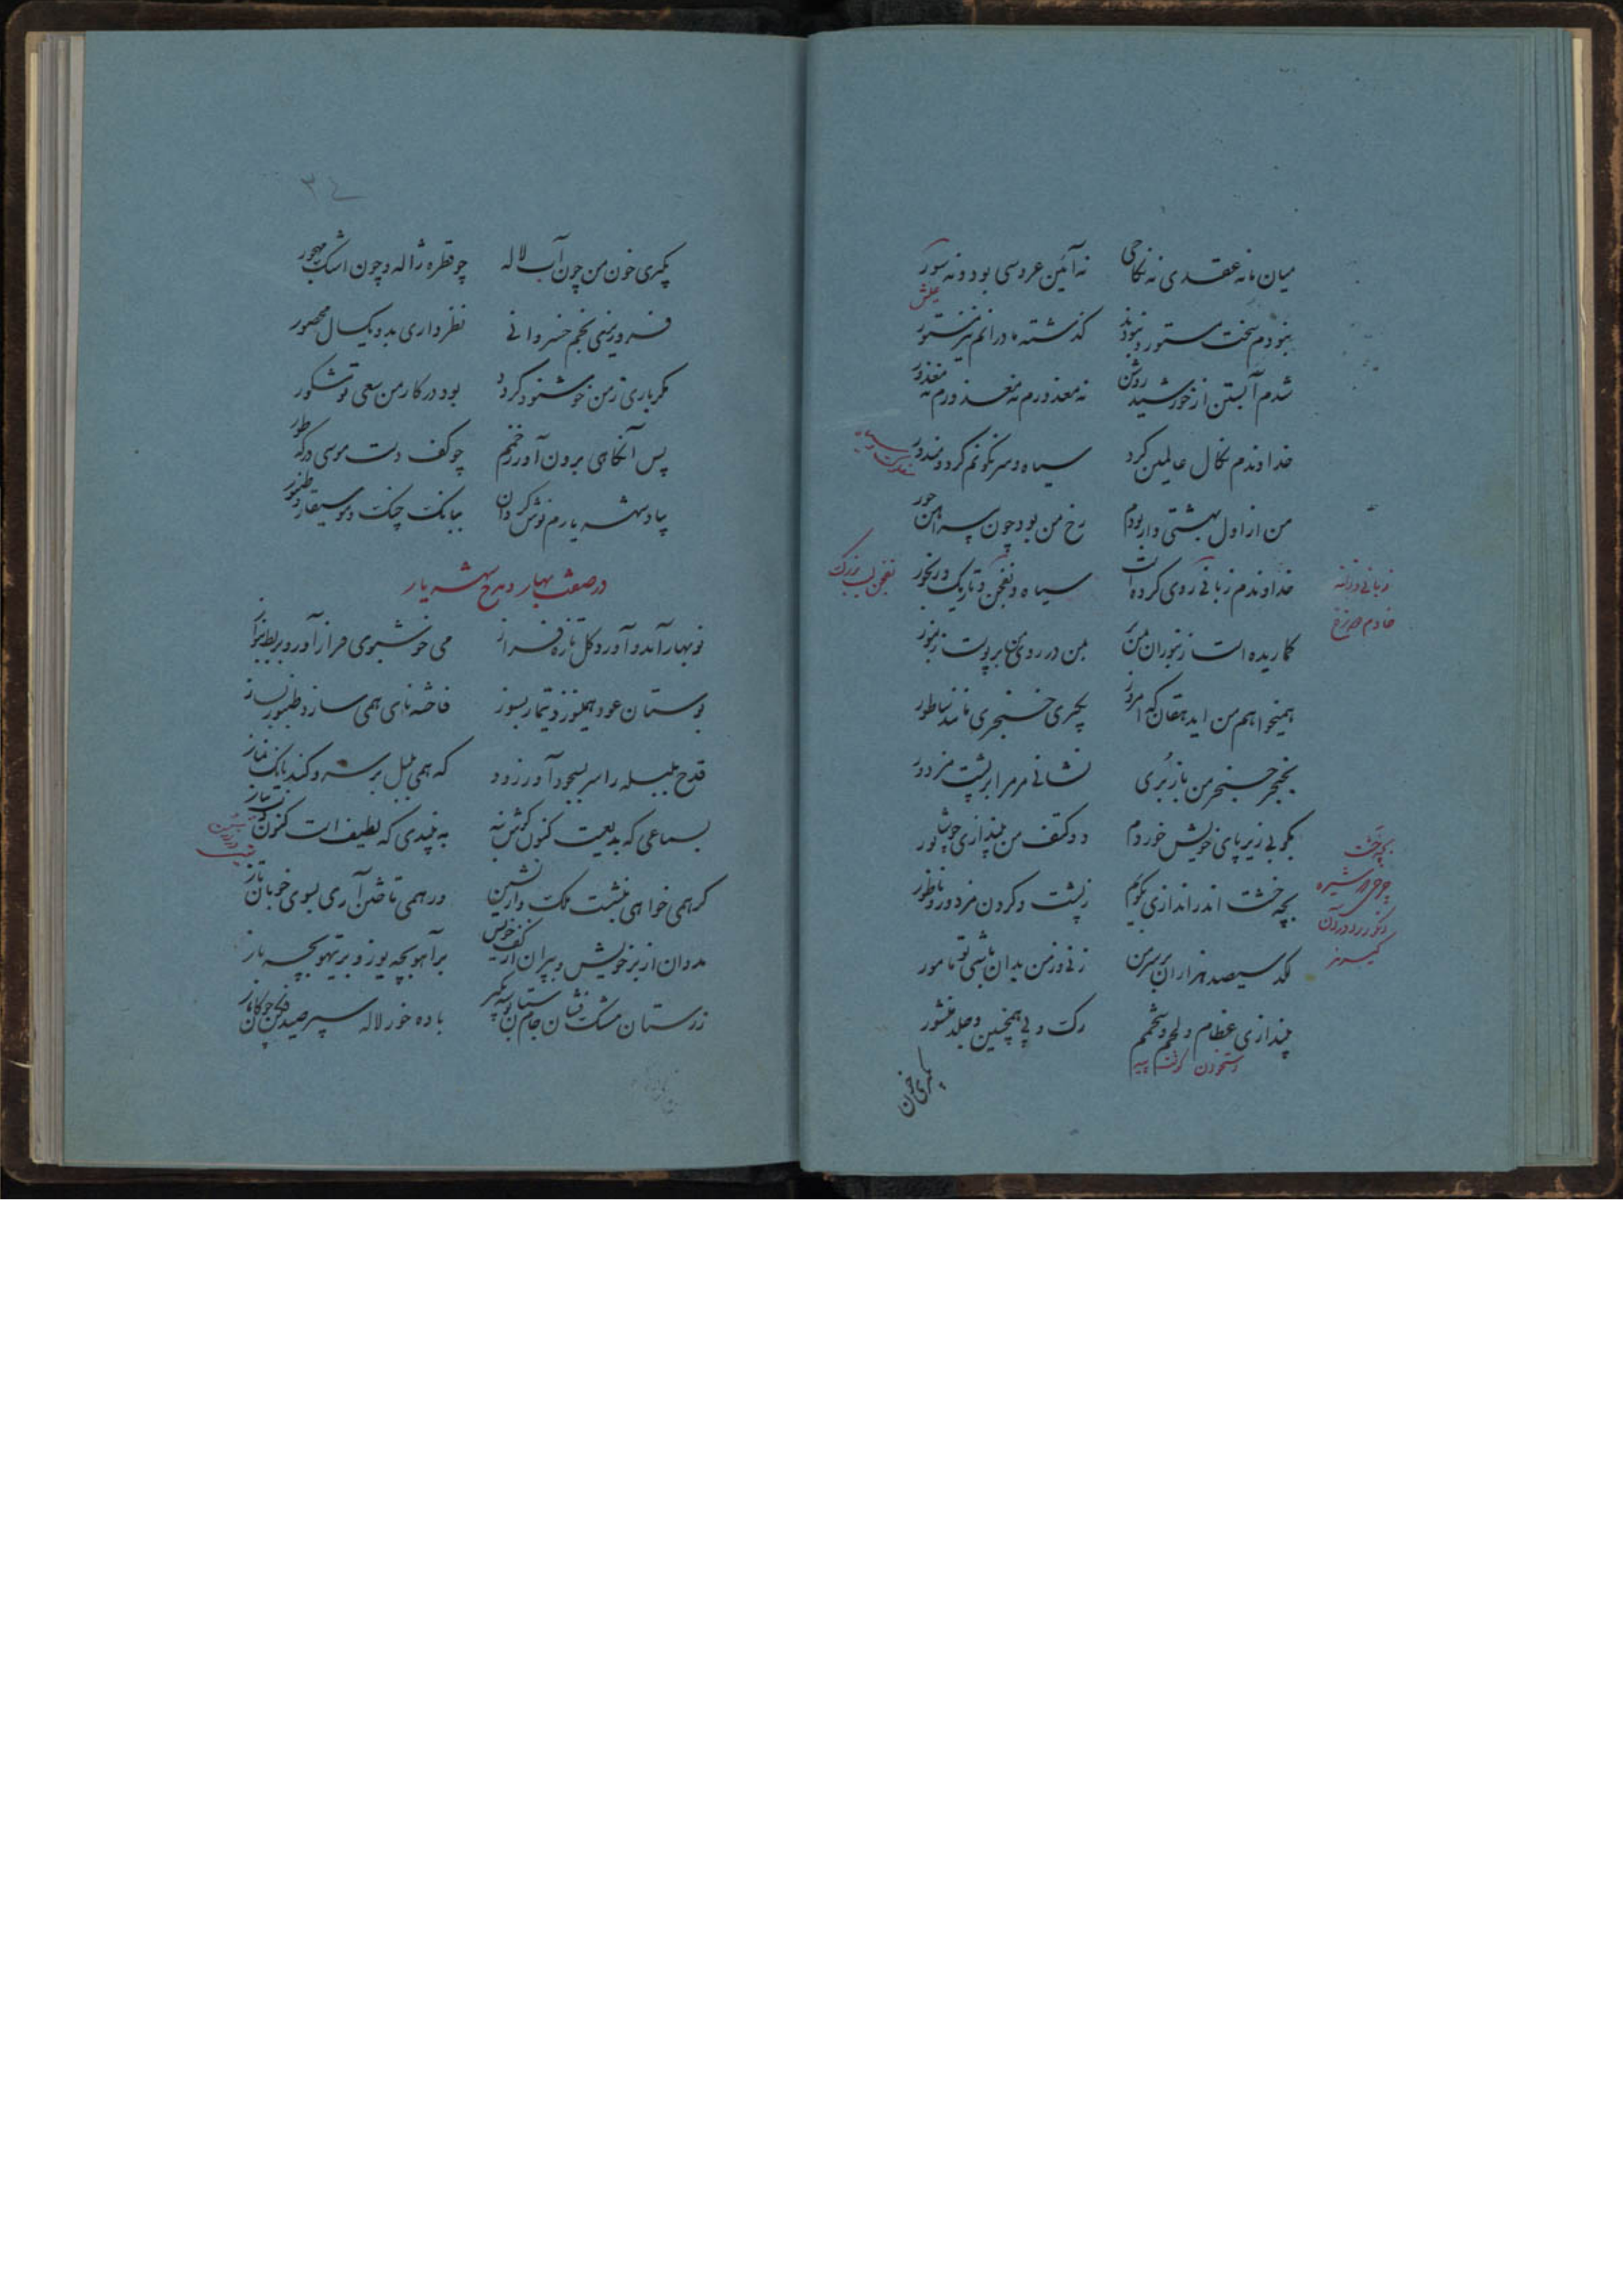 میان ما نه عقدی نه نکاحی
نه آئین عروسی بود و نه سور
نبودم سخت مستور و نبودند
گذشته مادرانم نیز مستور
شدم آبستن از خورشید روشن
نه معذورم نه معذورم نه معذور
خداوندم نکال عالمین کرد
سیاه و سرنگونم کرد و مندور
من از اول بهشتی وار بودم
رخ من بود چون پیراهن حور
خداوندم زبانی روی کرده است
سیاه و نفجن و تاریک و رنجور
گماریده است زنبوران بمن بر
همیخواهم من ای دهقان که امروز
بگیری خنجری مانند ساطور
بخنجر حنجر من باز بری
نشانی مر مرا بر پشت مزدور
بکوبی زیر پای خویش خوردم
دو کتف من بیندازی چو شاپور
بچرخشت اندر اندازی نگونم
ز پشت و گردن مزدور و ناطور
لگد سیصد هزاران بر سر من
زنی وز من بدان باشی تو مامور
بیندازی عظام و لحم و شحمم
رگ و پی همچنین و جلد منشور
بگیری خون
عیش
نفجن لب بزرگ
خادم دوزخ
بچرخشت
استخوان گوشت پیه
بگیری خون من چون آب لاله
چو قطره ژاله و چون اشک مهجور
فرو ریزی بخم خسروانی
نظر داری بدو یکسال محصور
مگر باری ز من خوشنود گردد
بود در کار من سعی تو مشکور
پس آنگاهی برون آور ز خمم
چو کف دست موسی در که طور
بیاد شهریارم نوش گردان
ببانگ چنگ و موسیقار و طنبور
در صفت بهار و مدح شهریار
نوبهار آمد و آورد گل تازه فراز
می خوشبوی فراز آور و بربط بنواز
بوستان عود همیسوزد تیمار بسوز
فاخته نای همی سازد طنبور بساز
قدح بلبله را سر بسجود آور زود
که همی بلبل بر سرو کند بانگ نماز
بسماعی که بدیعست کنون گوش بنه
به نبیدی که لطیف است کنون دست بیاز
گر همی خواهی بنشست ملک وار نشین
ور همی تاختن آری بسوی خوبان تاز
بدوان از بر خویش و بپران از کف خویش
بر آهو بچه یوز و بر تیهو بچه باز
زر ستان مشک فشان جام ستان بوسه بگیر
باده خور لاله سپر صید کن چوگان باز